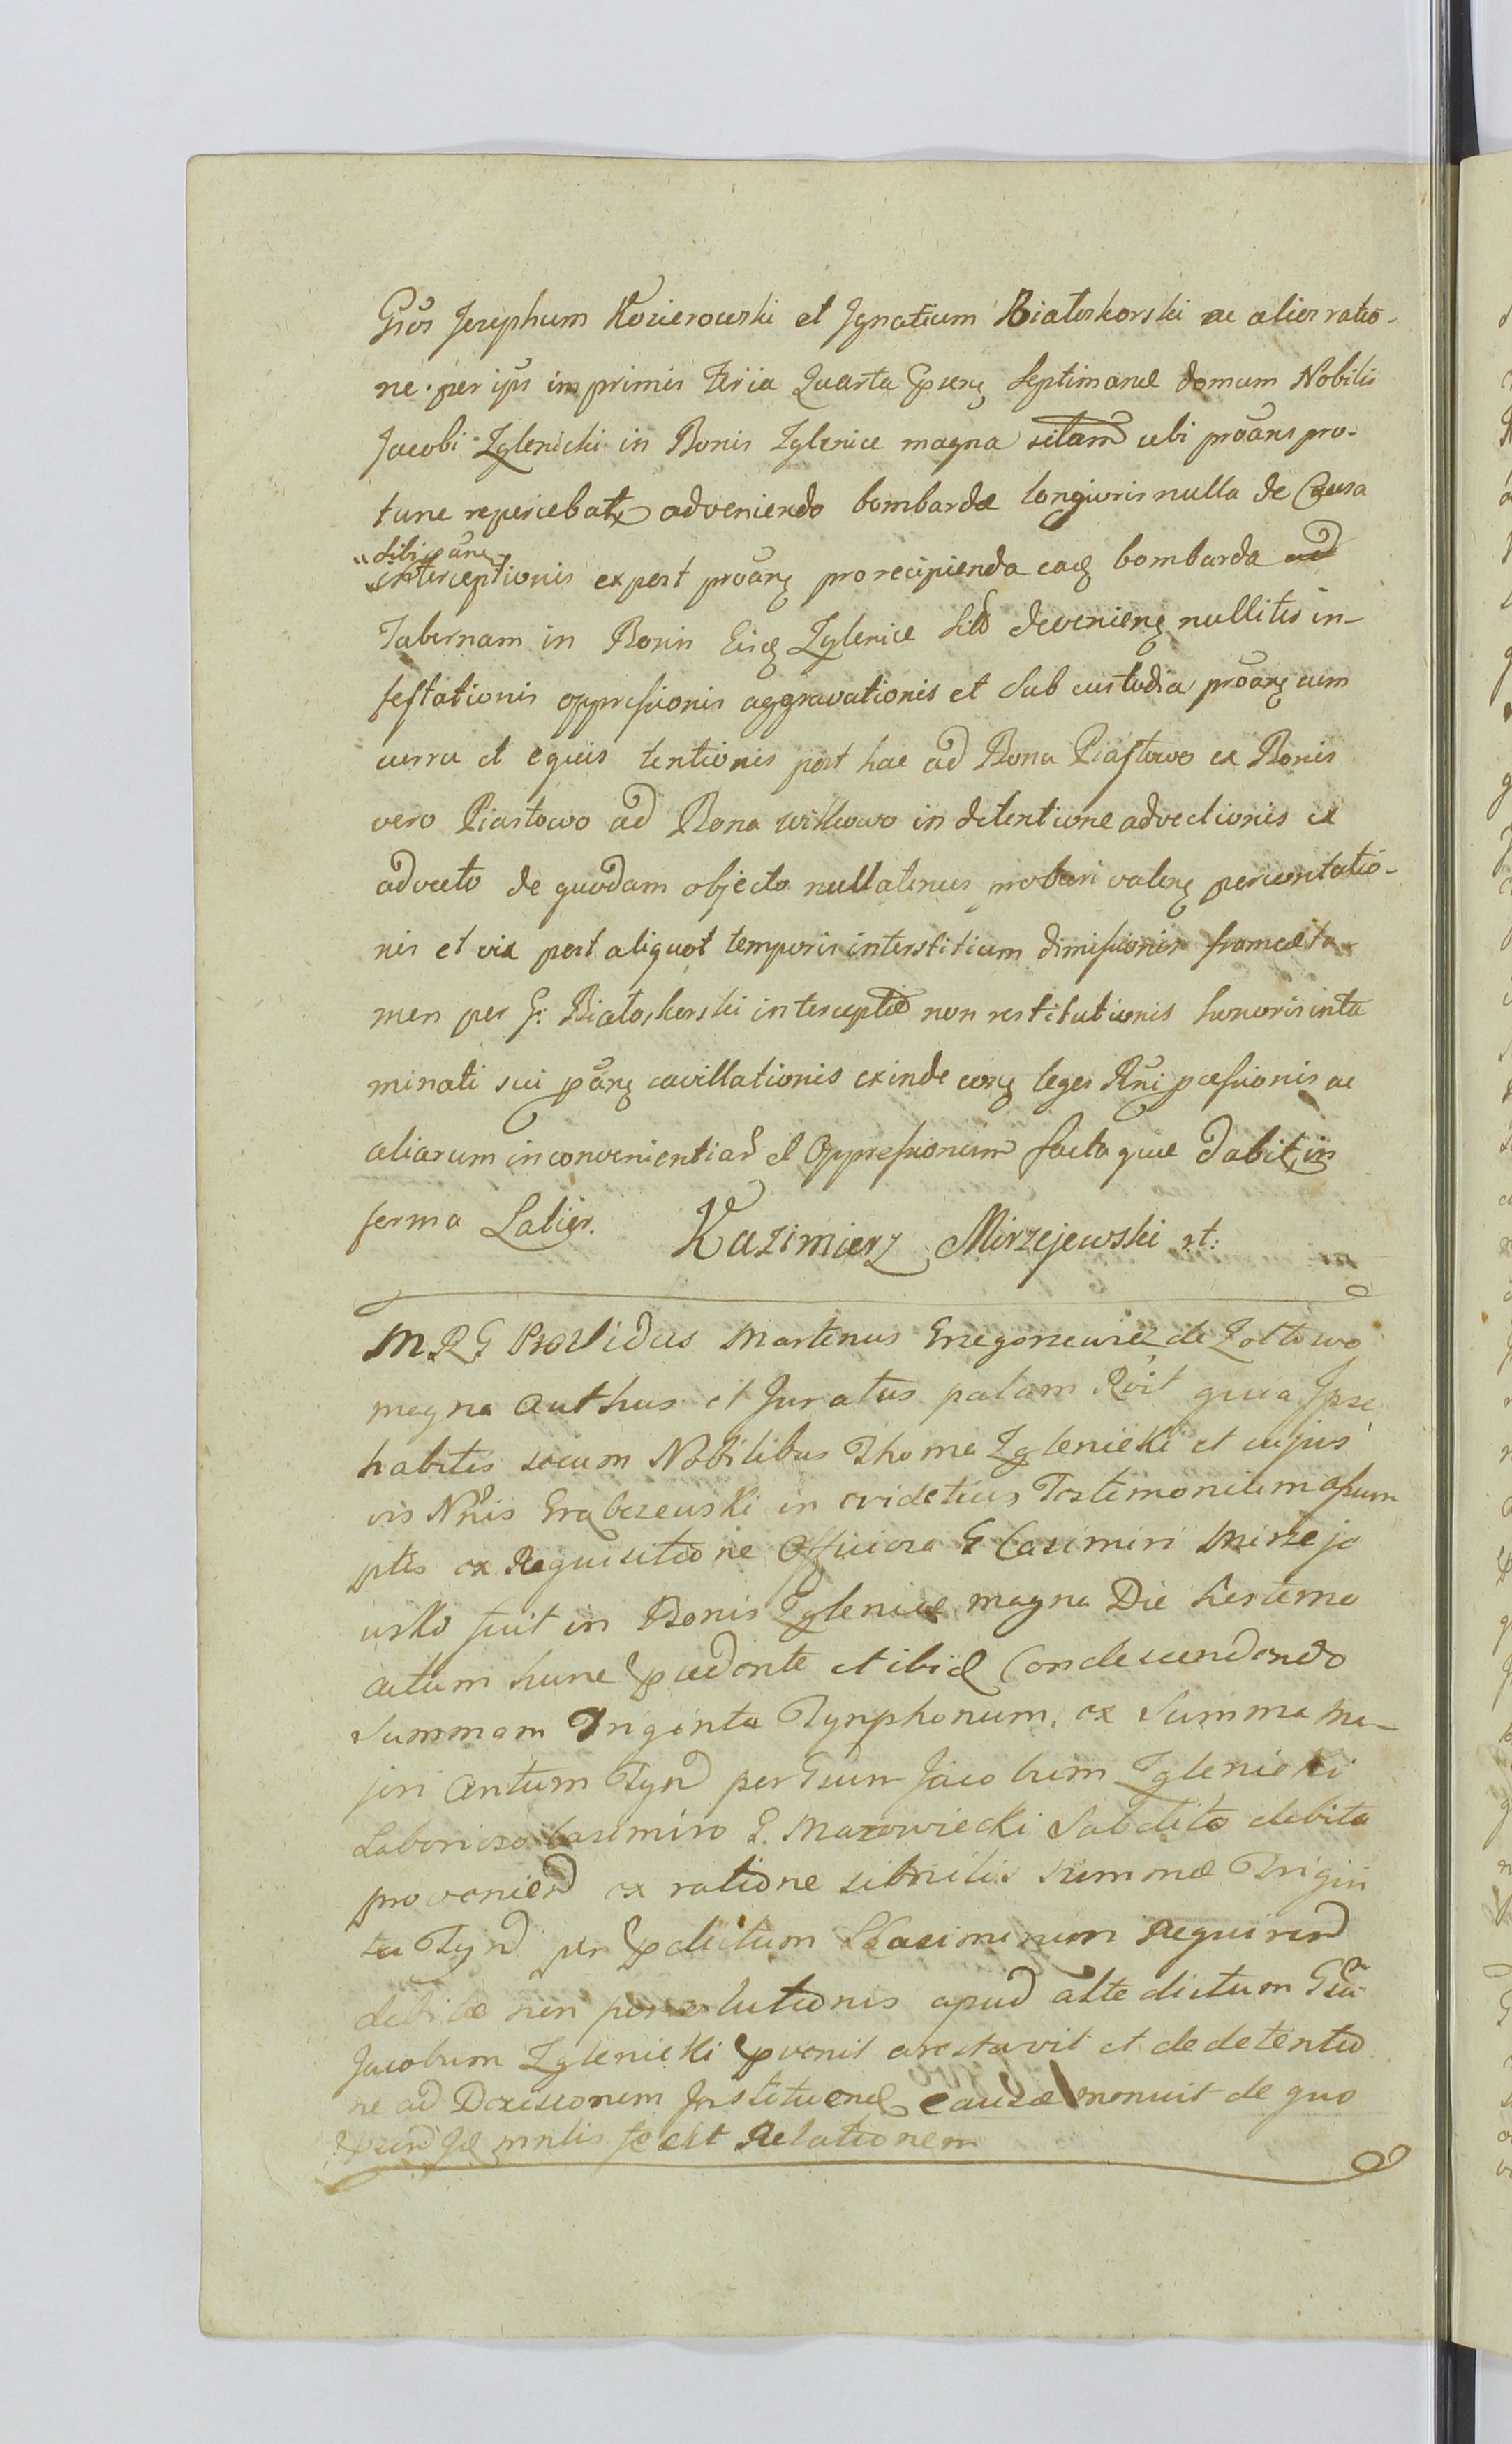 Gsos Josephum Kozierowski et Ignatium Białoskorski ac alios ratio-
ne per ips imprimis Feria Quarta Septimanæ domum Nobilis
Jacobi Zglenicki in Bonis Zglenice magna sitam ubi proãns pro-
tunc reperiebatr adveniendo bombardæ longioris nulla de Causa
sibi
interceptionis ex post pro recipienda bombarda ad
Tabernam in Bonis Zglenice devenien nullitus in-
festationis oppressionis aggravationis et sub custodia cum
curru et equis tentionis post hac ad Bona Piastowo ex Bonis
vero Piastowo ad Bona witkowo in detentione advectionis et
advecto de quodam objecto nullatenus probari percontatio-
nis et vix post aliquot temporis interstitium dimissionis frameæ ta-
men per G: Białoskorski interceptæ non restitutionis honoris inta
minati sui cavillationis exinde leges Rñi ac
aliarum inconvenientiar et Oppressionum facta quæ dabit in
ferma Latior. Kazimierz Mirzejewski rt:
M R G Providus Martinus Grzegorzewicz de Lottowo
magna Authus et Juratus palam Rvit quia Ipse
habitis secum Nobilibus Thoma Zglenicki et cujus
vis Nñis Grabczewski in evidetius Testimonium assum
ptis ex Requisitione Officiosa G Casimiri Mirzeje
wski fuit in Bonis Zglenice magna Die hesterna
actum hunc et ibid Condescendendo
Summam Triginta Tynphonum, ex Summa ma-
jori Centum Tyn per Gsum Jacobum Zglenicki
Laborioso Casimiro G. Mazowiecki Subdito debita
provenien ex ratione similis summæ Trigin
ta Tyn per dictum Kasimirum Requiren
debitæ non persolutionis apud alte dictum Gsũ
Jacobum Zglenicki arestavit et de detentio
ne ad Decisionem Instituend causæ monuit de quo
fecit Relationem